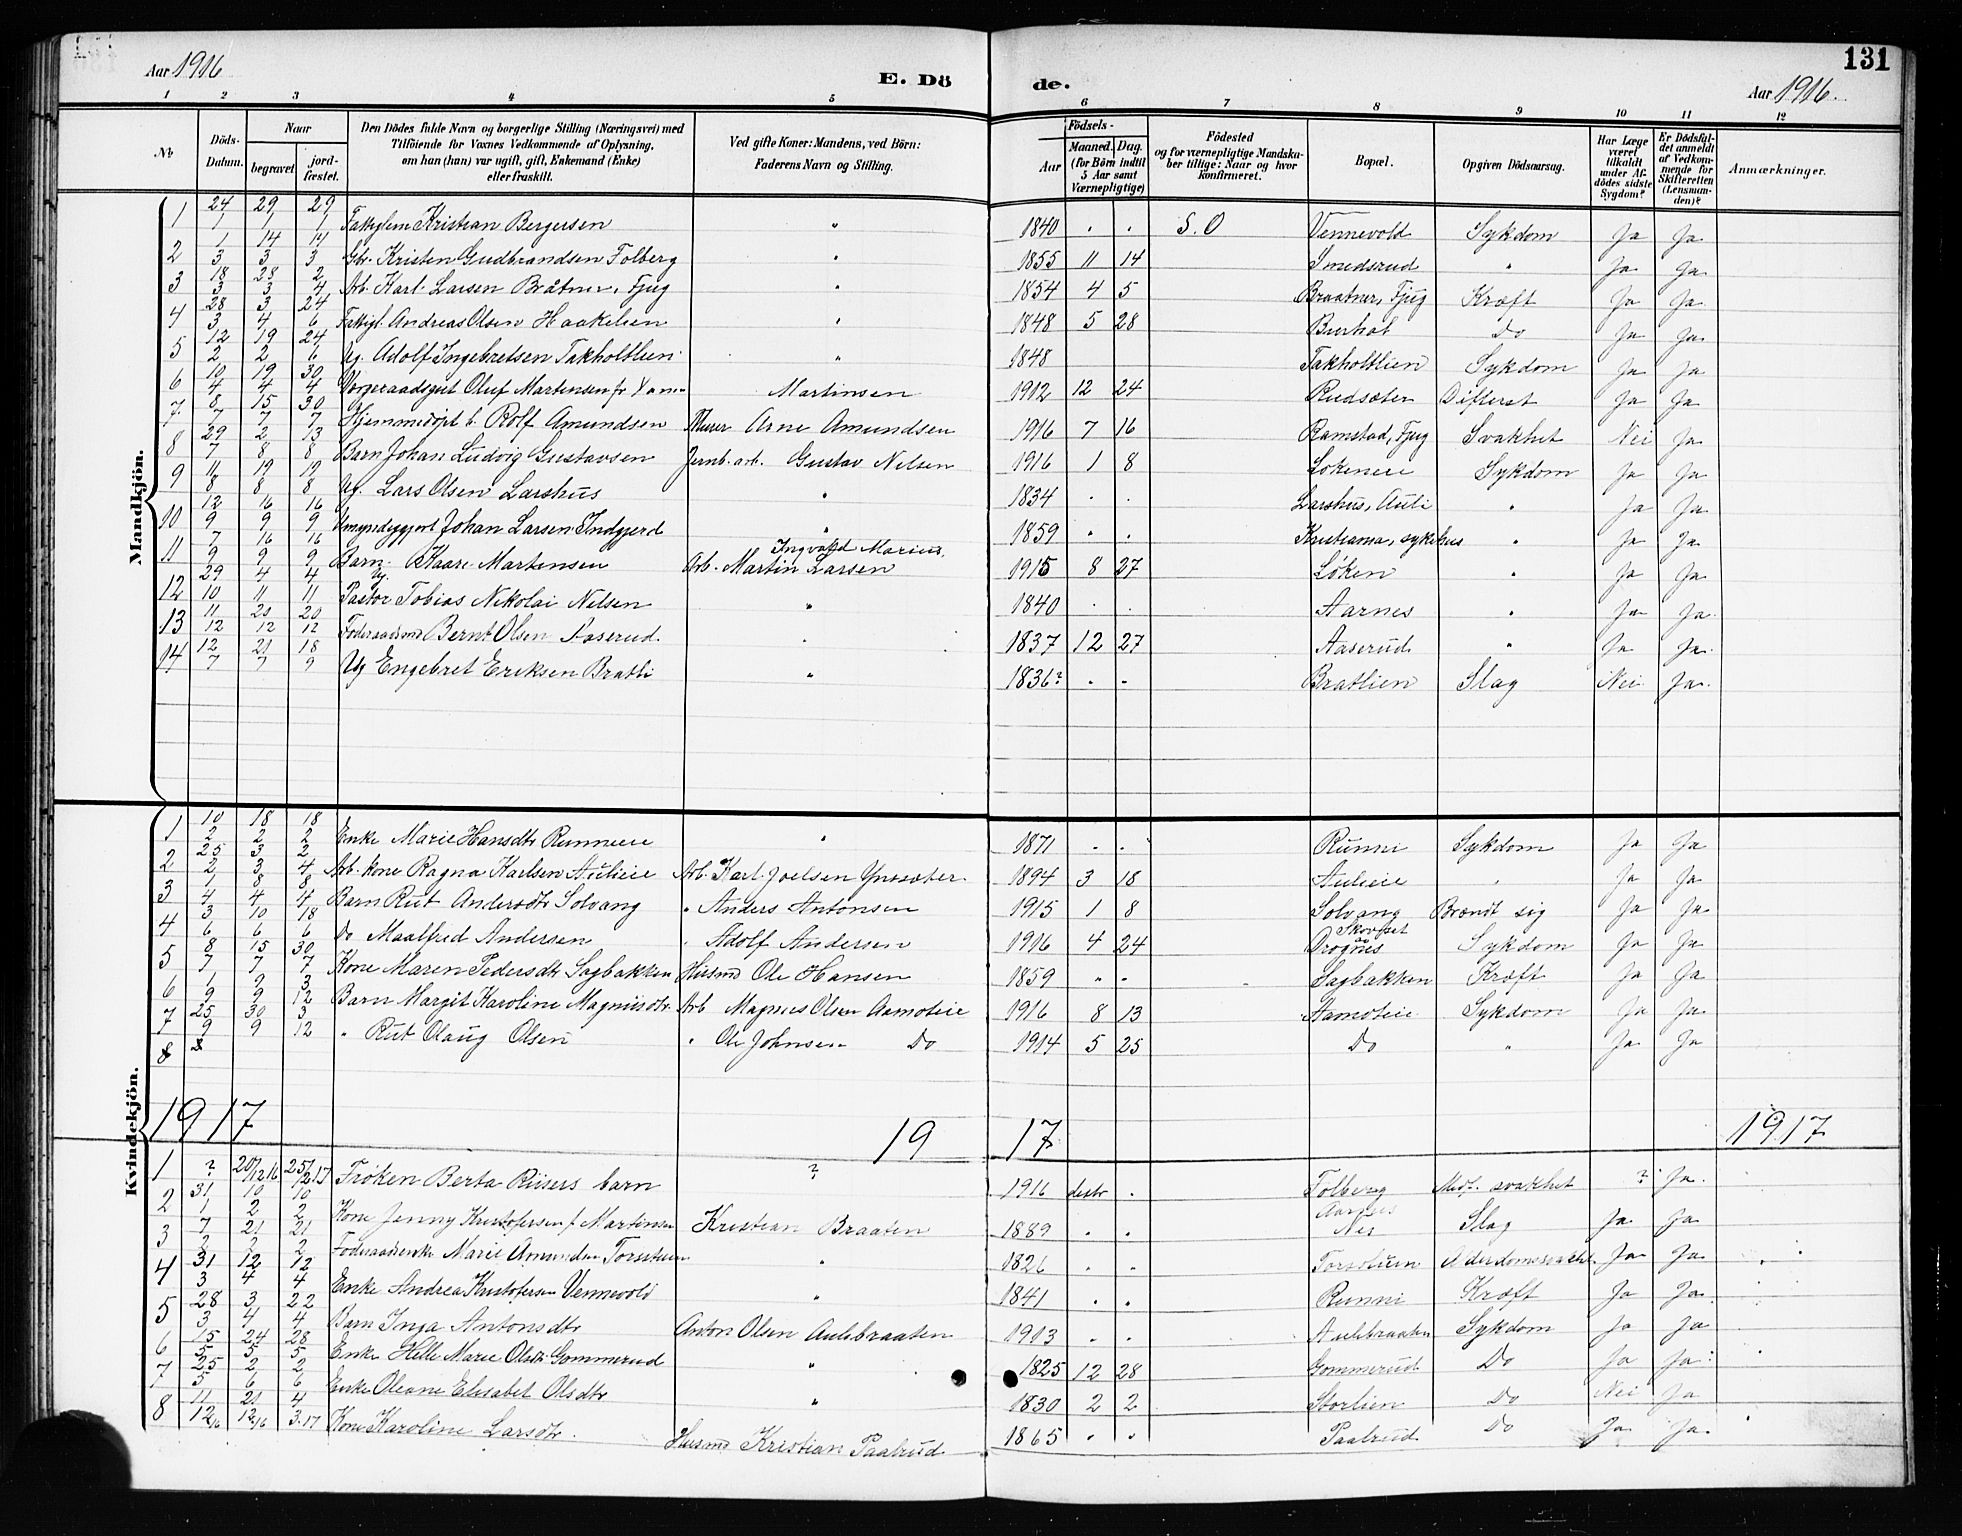 131
Aar 1916
E. Dö
de.
Aar 1916.
1 2 3 4 5 6 7 8 9 10 11 12
No
Döds-Datum.
Naar
begravet
jord-fæstet.
Den Dödes fulde Navn og borgerlige Stilling (Næringsvei) med Tilföiende for Voxnes Vedkommende af Oplysning, om han (hun) var ugift, gift, Enkemand (Enke) eller fraskilt.
Ved gifte Koner: Mandens, ved Börn: Faderens Navn og Stilling.
Födsels-
Aar
Maaned. Dag.
(for Börn indtil 5 Aar samt Værnepligtige)
Födested og for værnepligtige Mandskaber tillige: Naar og hvor Konfirmeret.
Bopæl.
Opgiven Dödsaarsag.
Har Læge været tilkaldt under Afdödes sidste Sygdom?
Er Dödsfaldet anmeldt af Vedkommende for Skifteretten (Lensmanden)?
Anmærkninger.
Mandkjön.
1 24/1 29/1 29/1 Fattiglem Kristian Bergersen " 1840 " " S.O Vennevold Sykdom Ja Ja
2 1/3 14/3 14/3 Gbr. Kristen Gudbrandsen Folberg " 1855 11 14 Smedsrud " Ja Ja
3 18/3 28/3 2/4 Arb. Karl Larsen Bråtner, Fjug " 1854 4 5 Braatner, Fjug Kræft Ja Ja
4 28/3 3/4 24/6 Fattigl. Andreas Olsen Haakelien " 1848 5 28 Do Ja Ja
5 12/2 19/2 24/6 Ug. Adolf Ingebretsen Takholtlien " 1848 Takholtlien Sykdom Ja Ja
6 10/4 19/4 30/4 Vergeraadsgut Oluf Martensen Martinsen 1912 12 24 Rudsæter Difterit Ja Ja
7 8/7 15/7 30/7 Hjemmedøpt b. Rolf Amundsen Murer Arne Amundsen 1916 7 16 Ramstad, Fjug Svakhet Nei Ja
8 29/7 2/8 13/8 Barn Johan Ludvig Gustavsen Jernb. arb. Gustav Nilsen 1916 1 8 Løkeneie Sykdom Ja Ja
9 11/8 19/8 19/8 Ug. Lars Olsen Larshus " 1834 " " Larshus, Auli " Ja Ja
10 12/9 16/9 16/9 Umyndiggjort Johan Larsen Indgjerd " 1859 " " Kristiania, sykehus " Ja Ja
11 7/9 16/9 16/9 Barn Kaare Martensen Arb. Martin Larsen Ingvald Marius 1915 8 27 Løken " Ja Ja
12 29/10 4/11 4/11 Ug. Pastor Tobias Nikolai Nilsen " 1840 " " Aarnes " Ja Ja
13 11/12 20/12 20/12 Føderaadsmd Bernt Olsen Aaserud " 1837 12 27 Aaserud " Ja Ja
14 12/7 21/7 18/9 Ug Engebret Eriksen Bratli " 1836? " " Bratlien Slag Nei Ja
Kvindekjön.
1 10/2 18/2 18/2 Enke Marie Hansdtr Runnieie " 1871 " " Runni Sykdom Ja Ja
2 25/2 3/3 2/4 Arb. kone Ragna Karlsen Aulieie Arb. Karl Joelsen Ynsæter 1894 3 18 Aulieie " Ja Ja
3 1/4 8/4 8/4 Barn Rut Andersdtr Solvang " Anders Antonsen 1915 1 8 Solvang Brændt sig Ja Ja
4 3/6 10/6 18/6 Do Maalfrid Andersen " Adolf Andersen 1916 4 24 Skovset Drognes Sykdom Ja Ja
5 8/7 15/7 30/7 Kone Maren Pedersdtr Sagbakken Husmd Ole Hansen 1859 " " Sagbakken Kræft Ja Ja
6 1/9 9/9 3/12 Barn Margit Karoline Magnusdtr. Arb Magnus Olsen Aamoteie 1916 8 13 Aamoteie Sykdom Ja Ja
7 25/9 30/9 3/12 " Rut Olaug Olsen " Ole Johnsen Do 1914 5 25 Do " Ja Ja
8
1917 19 17 1917
1 ? 20/12 16 25/2 17 Frøken Berta Riisers barn ? 1916 desbr " Folberg Medf. svakhet ? Ja
2 31/1 10/2 10/2 Kone Jenny Kristofersen f. Martinsen Kristian Braaten 1889 " " Aarnes Nes Slag Ja Ja
3 7/2 21/2 21/2 Føderaadsenke Marie Torstuen " 1826 " " Torstuen Alderdomssvakhet Ja Ja
4 31/3 12/4 12/4 Enke Andrea Kristofersen Vennevold " 1841 " " Runni Kræft Ja Ja
5 28/3 3/4 22/4 Barn Inga Antonsdtr Anton Olsen Aulibraaten 1913 " " Aulibraaten Sykdom Ja Ja
6 15/5 24/5 28/5 Enke Helle Marie Olsdtr Gommerud " 1825 12 28 Gommerud Do Ja Ja
7 25/5 2/6 2/6 Enke Oleane Elisabet Olsdtr " 1830 2 2 Storlien Do Nei Ja
8 11/12 16 21/12 16 4/3.17 Kone Karoline Larsdtr. Husmd Kristian Paalrud 1865 " " Paalrud Do Ja Ja